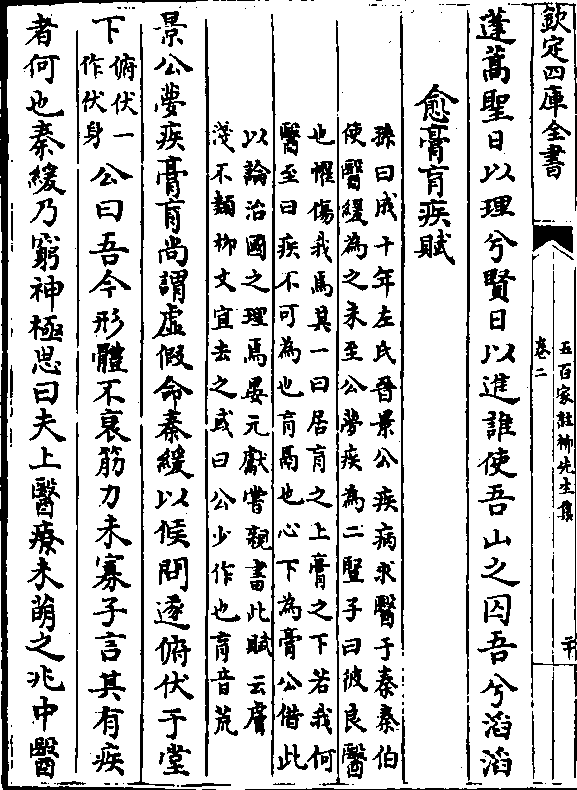 欽定四庫全書
五百家註柳先生集
卷二
蓬蒿聖日以理兮賢日以進誰使吾山之囚吾兮滔滔
愈膏肓疾賦
孫曰成十年左氏晉景公疾病求醫于秦秦伯
使醫緩為之未至公夢疾為二豎子曰彼良醫
也懼傷我焉其一曰居肓之上膏之下若我何
醫至曰疾不可為也肓鬲也心下為膏公借此
以論治國之理焉晏元獻嘗親書此賦云膚
淺不類柳文宜去之或曰公少作也肓音荒
景公夢疾膏肓尚謂虛假命秦緩以候問遂俯伏于堂
下俯伏一作伏身公曰吾今形體不衰筋力未寡子言其有疾
者何也秦緩乃窮神極思曰夫上醫療未萌之兆中醫